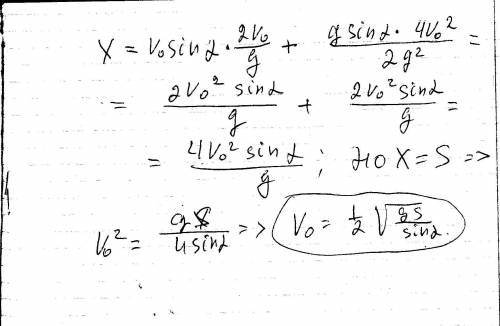 X = V₀ sin α · 2V₀/g + g sin α · 4V₀²/2g² =
= 2V₀² sin α/g + 2V₀² sin α/g =
= 4V₀² sin α/g ; но X = S =>
V₀² = gS/4 sin α => V₀ = 1/2 √(gS/sin α).